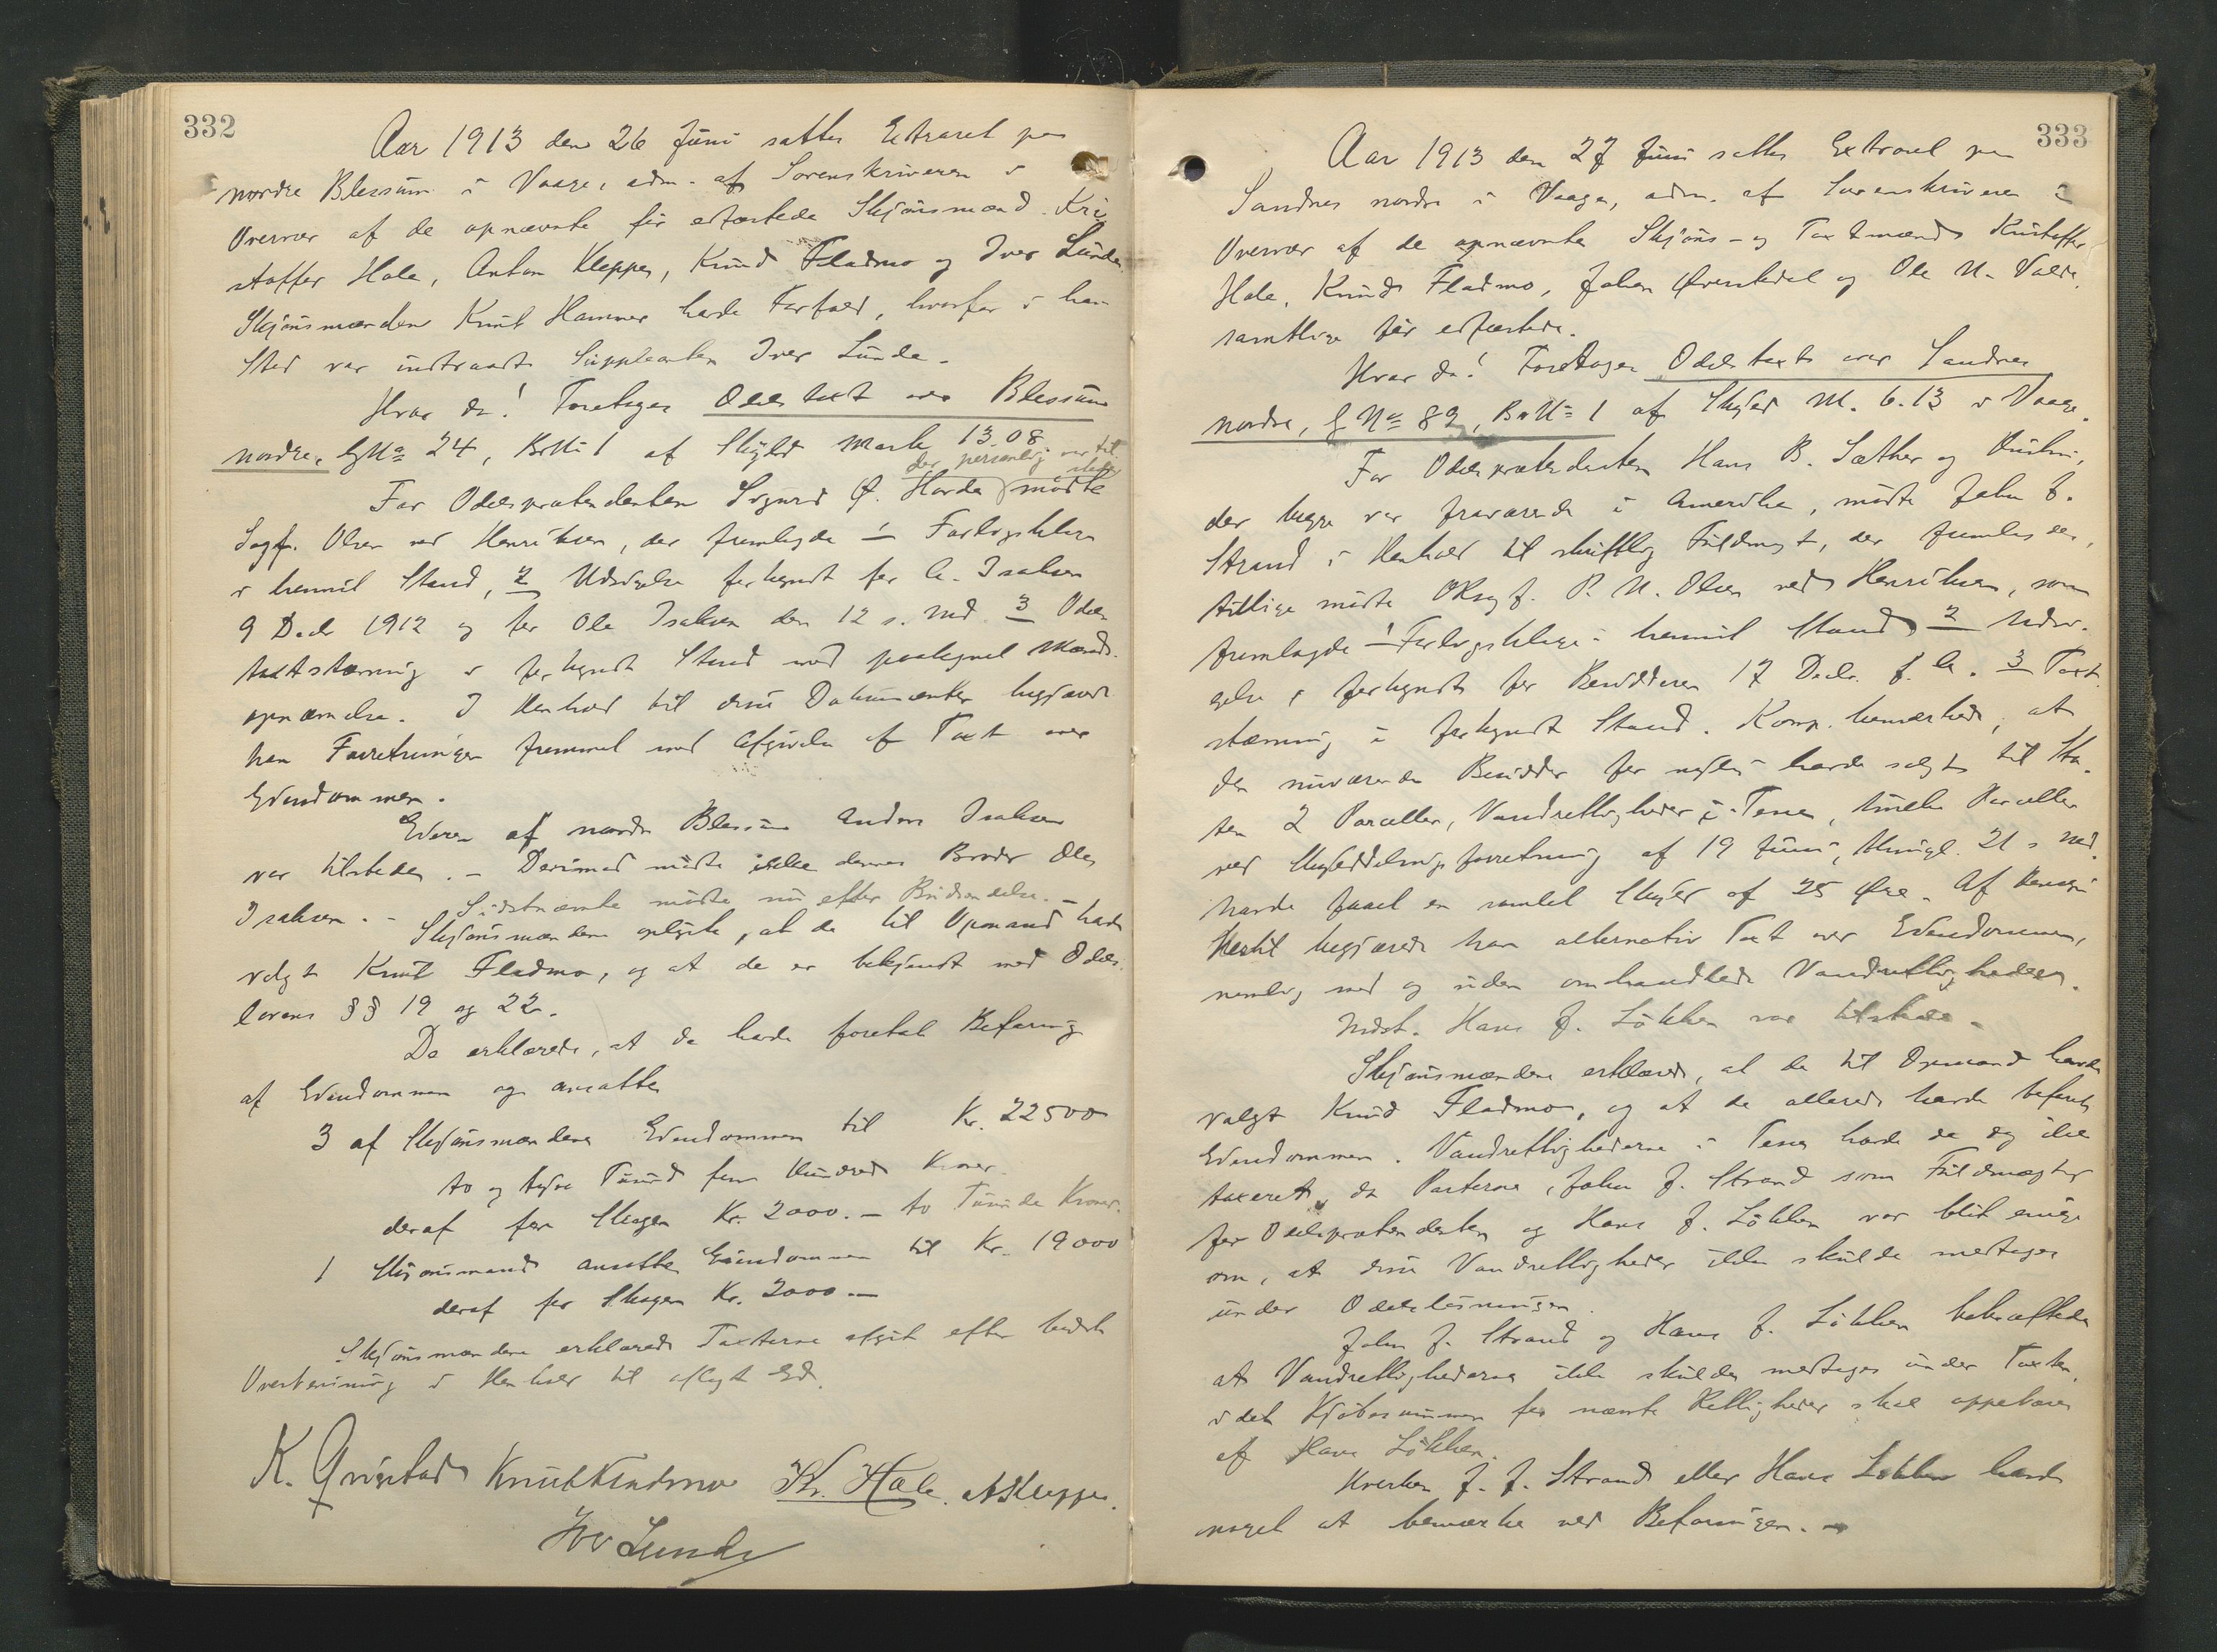 332
Aar 1913 den 26 Juni sattes Extraret paa
nordre Blessum i Vaage, adm. af Sorenskriveren i
Overvær af de opnævnte før edfæstede Skjønsmænd Kri
stoffer Hole, Anton Kleppe, Knud Fladmo og Iver Lunde.
Skjønsmanden Knut Hammer havde Forfald, hvorfor i hans
Sted var indtraadt Suppleanten Iver Lunde.
Hvor da! Foretoges Odelstaxt over Blessum
nordre, GNo 24, BrNo 1 af Skyld Mark 13.08
der personlig var til
stede
For Odelsprætendenten Sigurd Ø. Horda mødte
Sagf. Olsen ved Henriksen, der fremlagde 1 Forligsklage
i hermet Stand, 2 Udsigelse forkyndt for A. Isaksen
9 Decbr 1912 og for Ole Isaksen den 12 s. Md. 3 Odels
taxtstævning i forkyndt Stand med paategnet Mænds-
opnævnelse. I Henhold til disse Dokumenter begjærede
han Forretningen fremmet med Afgivelse af Taxt over
Eiendommen.
Eieren af nordre Blessum Anders Isaksen
var tilstede. - Derimod mødte ikke dennes Broder Ole
Isaksen. - Sidstnævnte mødte nu efter Budsendelse. -
Skjønsmændene oplyste, at de til Opmand havde
valgt Knut Fladmo, og at de er bekjendt med Odels-
lovens §§ 19 og 22.
De erklærede, at de havde foretat Befaring
af Eiendommen og ansatte
3 af Skjønsmændene Eiendommen til Kr. 22500
to og tyve Tusind fem Hundrede Kroner
deraf for Skogen Kr. 2000. - to Tusinde Kroner.
1 Skjønsmand ansatte Eiendommen til Kr. 19000
deraf for Skogen Kr. 2000. -
Skjønsmændene erklærede Taxterne afgit efter bedste
Overbevisning i Henhold til aflagt Ed.
K. Qvigstad Knut Fladmo Kr. Hole. A Kleppe.
Iver Lunde
333
Aar 1913 den 27 Juni sattes Extraret paa
Sandnes nordre i Vaage, adm. af Sorenskriveren i
Overvær af de opnævnte Skjøns- og Taxtmænd Kristoffer
Hole, Knud Fladmo, Johan Øverstedal og Ole N. Valde,
samtlige før edfæstede.
Hvor da! Foretoges Odelstaxt over Sandnes
nordre, GNo 89, BrNo 1 af Skyld M. 6.13 i Vaage.
For Odelsprætendenten Hans B. Sæther og Hustru,
der begge var fraværende i Amerika, mødte John J.
Strand i Henhold til skriftlig Fuldmagt, der fremlægges,
tillige mødte ORsagf. P. N. Olsen ved Henriksen, som
fremlagde 1 Forligsklage i hermet Stand 2 Udsi-
gelse, forkyndt for Besidderen 17 Decbr. f. A. 3 Taxt
stævning i forkyndt Stand. Komp. bemærkede, at
den nuværende Besidder for nylig havde solgt til Sta-
ten 2 Parceller, Vandrettigheder i Tessa, hvilke Parceller
ved Skylddelingsforretning af 19 Juni, thingl. 21 s Md.
havde faaet en samlet Skyld af 25 Øre. Af Hensyn
hertil begjærede han alternativ Taxt over Eiendommen,
nemlig med og uden omhandlede Vandrettigheder.
Indst. Hans J. Løkken var tilstede.
Skjønsmændene erklærede, at de til Opmand havde
valgt Knud Fladmo, og at de allerede havde befaret
Eiendommen. Vandrettighederne i Tessa havde de dog ikke
taxeret, da Parterne, John J. Strand som Fuldmægtig
for Odelsprætendenten og Hans J. Løkken var blit enige
om, at disse Vandrettigheder ikke skulde medtages
under Odelsløsningen.
John J. Strand og Hans J. Løkken bekræftede
at Vandrettighederne ikke skulde medtages under Taxten,
idet Kjøbesummen for nævnte Rettigheder skal oppebæres
af Hans Løkken.
Hverken J. J. Strand eller Hans Løkken havde
noget at bemærke ved Befaringen. -